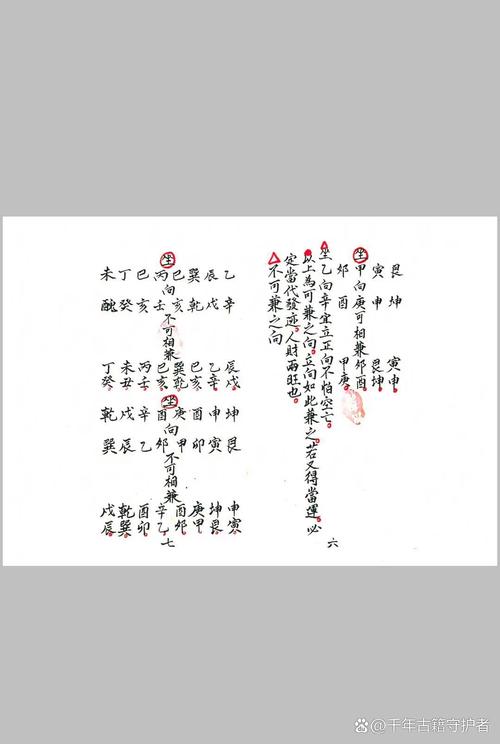 艮坤寅申
寅申艮坤
坐甲向庚可相兼卯酉
卯酉甲庚
坐乙向辛宜立正向不怕空亡
以上為可兼之向立向如此兼之若又得當運必
定當代發迹人財兩旺也
不可兼之向
六
乙辛辰戌
辰戌乙辛
巽乾巳亥
巳亥巽乾
坐丙向壬不可相兼巳亥
巳亥丙壬
丁癸未丑
未醜丁癸
坤艮申寅
申寅坤艮
酉卯庚甲
坐庚向甲不可相兼酉卯
酉卯辛乙
辛乙酉卯
戌辰乾巽
乾巽戌辰
七
百家号@千年古籍守护者